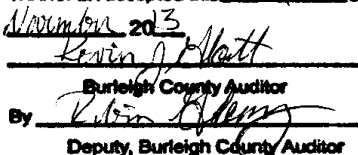 November 2013,
Kevin J. Glatt
Burleigh County Auditor
By Robin
Deputy, Burleigh County Auditor